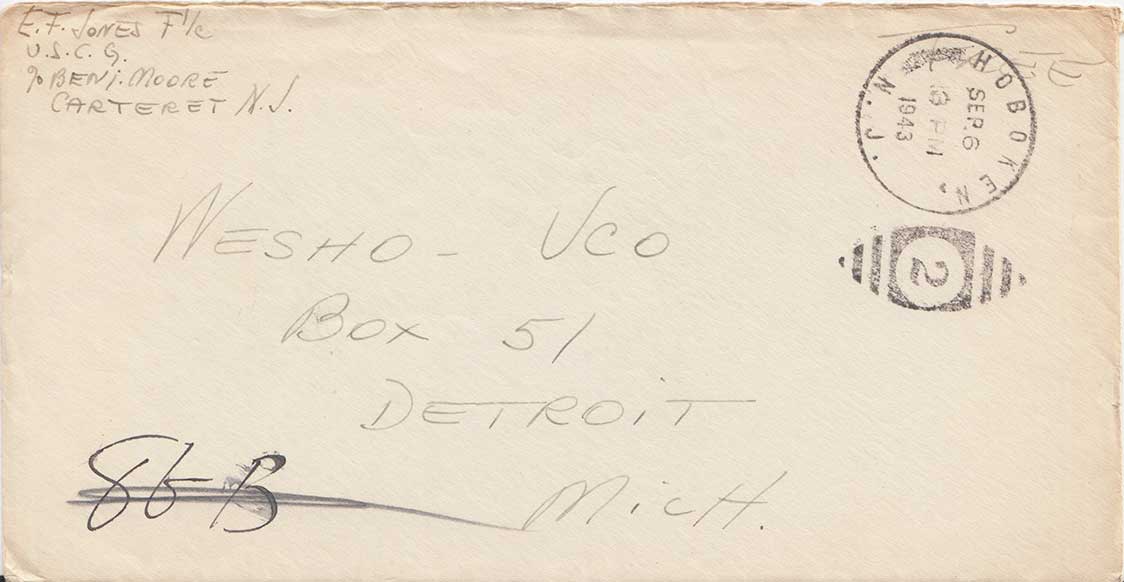 E. F. JONES F 1/c
U.S.C.G.
% BENJ. MOORE
CARTERET N.J.
HOBOKEN, N.J.
SEP 6
PM
1943
2
WESHO - UCO
BOX 51
DETROIT
MICH.